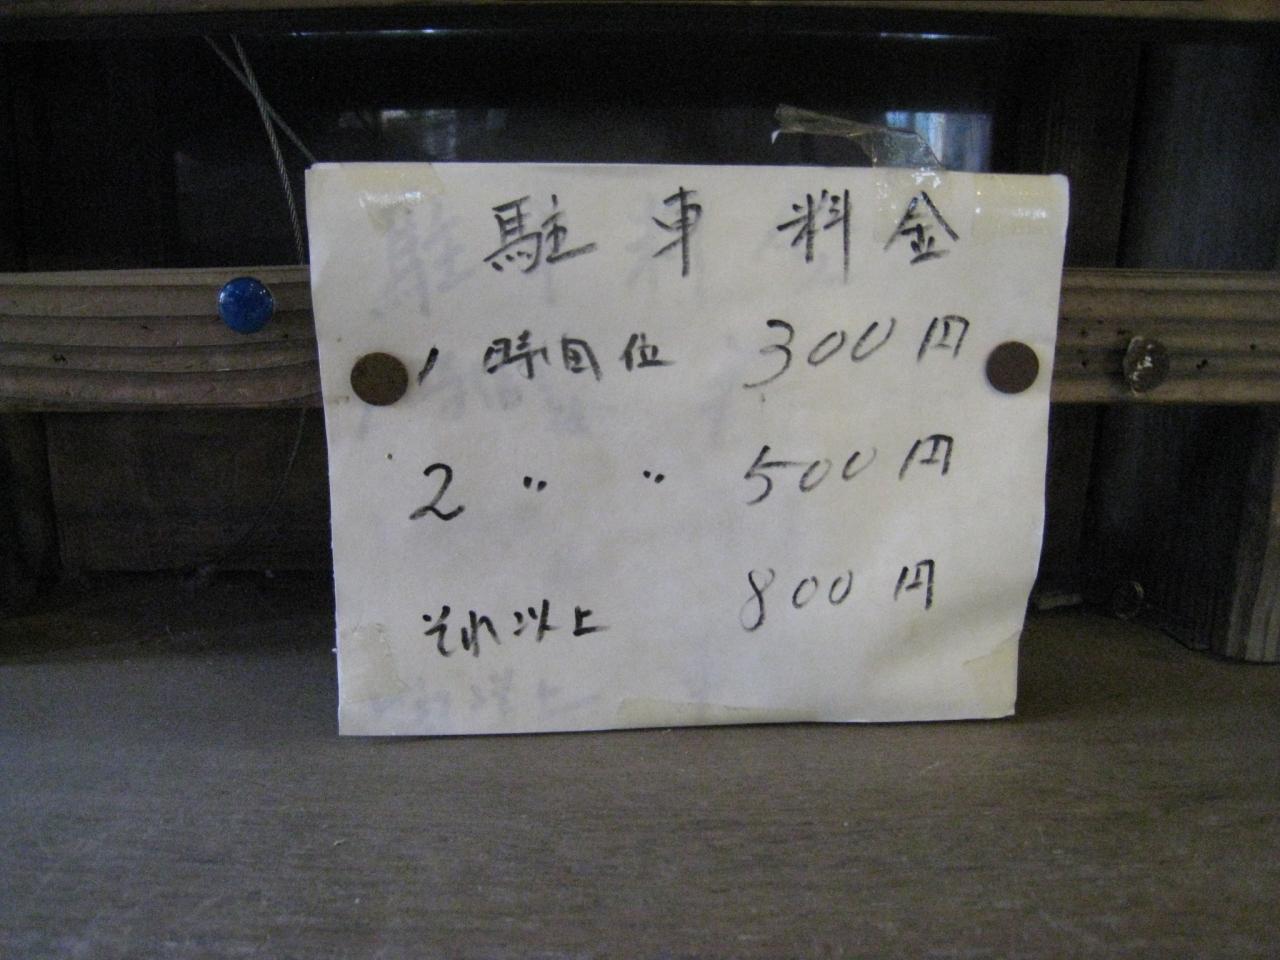 駐車料金
1 時间位 300円
2 〃 〃 500円
それ以上 800円